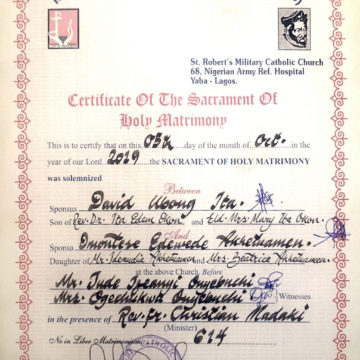 St. Robert's Military Catholic Church
68, Nigerian Army Ref. Hospital
Yaba - Lagos.
Certificate Of The Sacrament Of
Holy Matrimony
This is to certify that on this 05th day of the month of Oct. in the
year of our Lord 2019 the SACRAMENT OF HOLY MATRIMONY
was solemnized
Between
Sponsus David Ubong Ita.
Son of Rev. Dr. Ita Edem Okon and Eld. Mrs. Mary Ita Okon.
And
Sponsa Omotere Edewede
Daughter of Mr. and Mrs. Beatrice
at the above Church, Before
Mr. Jude Ifeanyi Onyebuchi
Mrs. Ogechukwu Onyebuchi Witnesses
in the presence of Rev. Fr. Christian Madaki
(Minister)
No in Liber Matrimoniorum 614
CATHOLIC